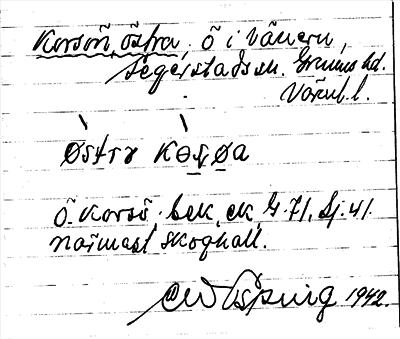 Korsön, östra, ö i Vänern,
Segerstads sn. Grums hd.
Värml. l.
Østrɤ Kɵʂøa
Ö. Korsö, bek, ek G. 71, Lj. 41.
närmast skogkall.
1942.